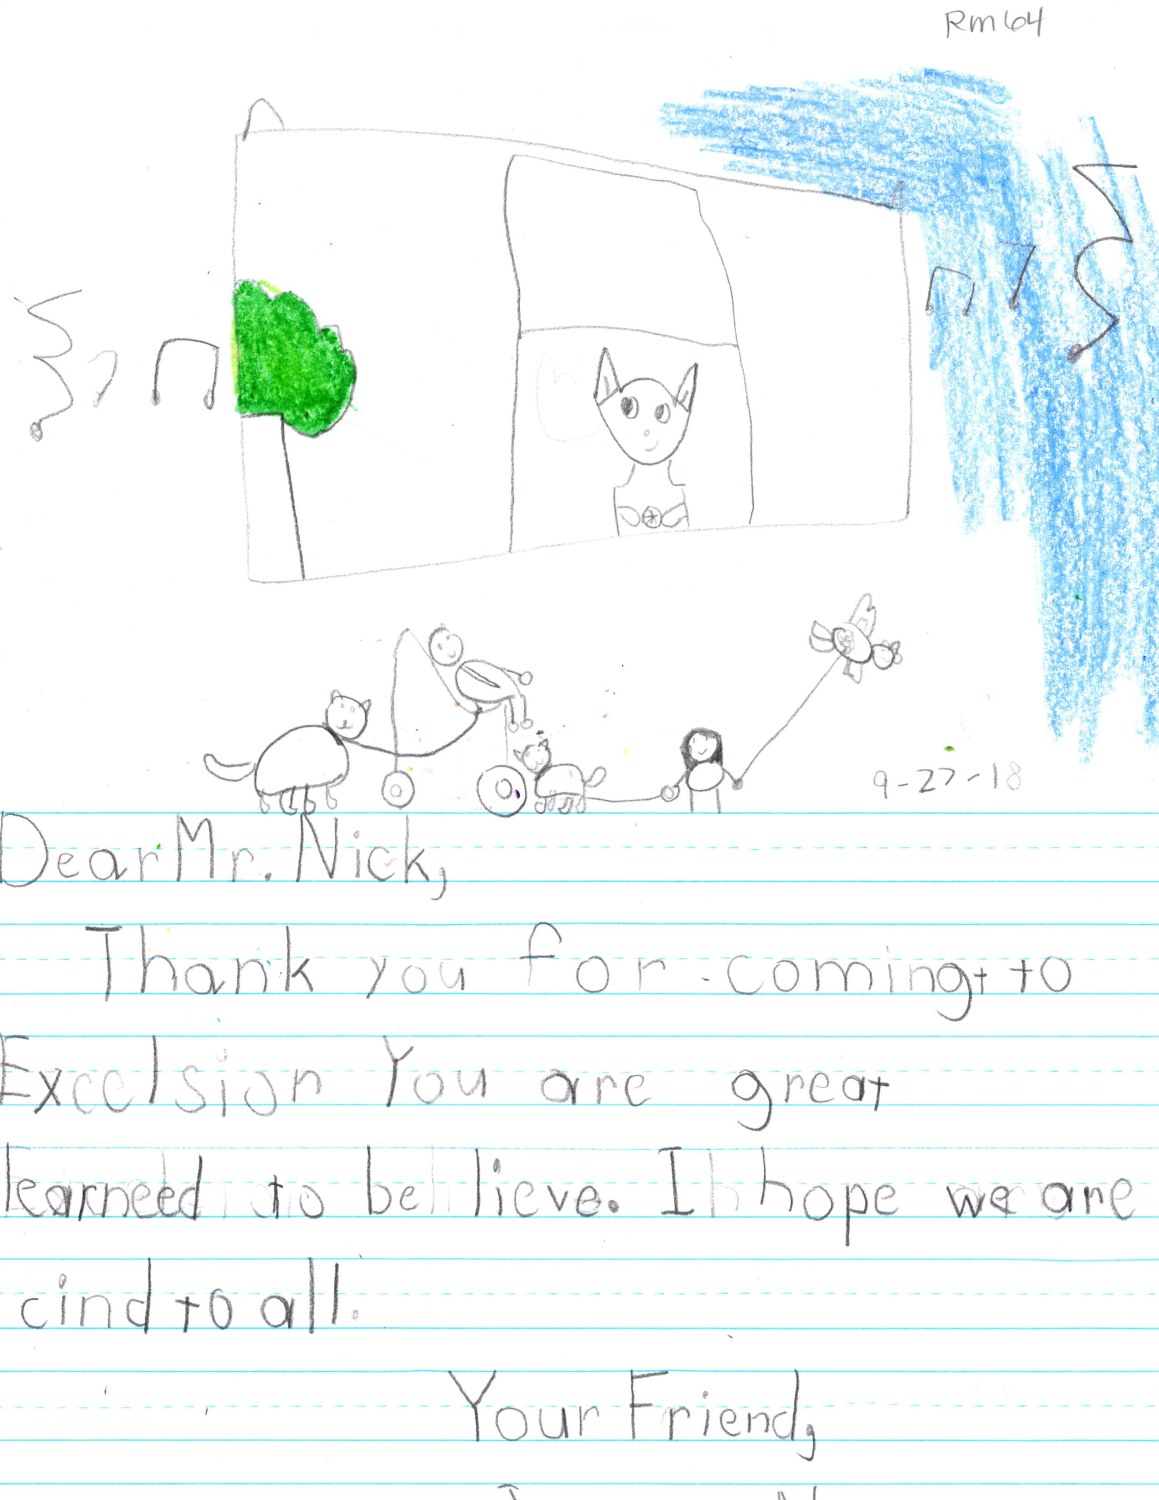 Rm 64
9-27-18
Dear Mr. Nick,
Thank you for coming to
Excelsior You are great
learneed to be lieve. I hope we are
cind to all.
Your Friend,